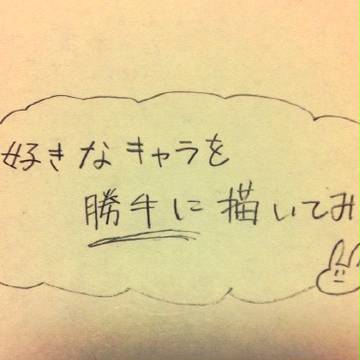 好きなキャラを
勝手に描いてみ